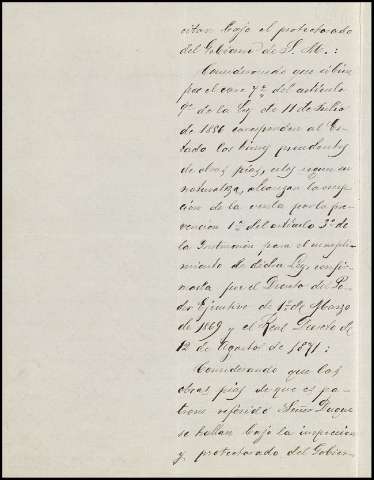 citan bajo el protectorado
del Gobierno de S. M.:
Considerando que si bien
por el caso 7º del artículo
9º de la Ley de 11 de Julio
de 1856 corresponden al Es-
tado los bienes procedentes
de obras pías, estos segun su
naturaleza, alcanzan la excep-
ción de la venta por la pre-
vencion 1ª del artículo 3º de
la Instrucción para el cumpli-
miento de dicha Ley, confir-
mada por el Decreto del Po-
der Ejecutivo de 1º de Marzo
de 1869 y el Real Decreto de
12 de Agosto de 1871:
Considerando que las
obras pias de que es pa-
trono referido Señor Duque
se hallan bajo la inspeccion
y protectorado del Gobier-